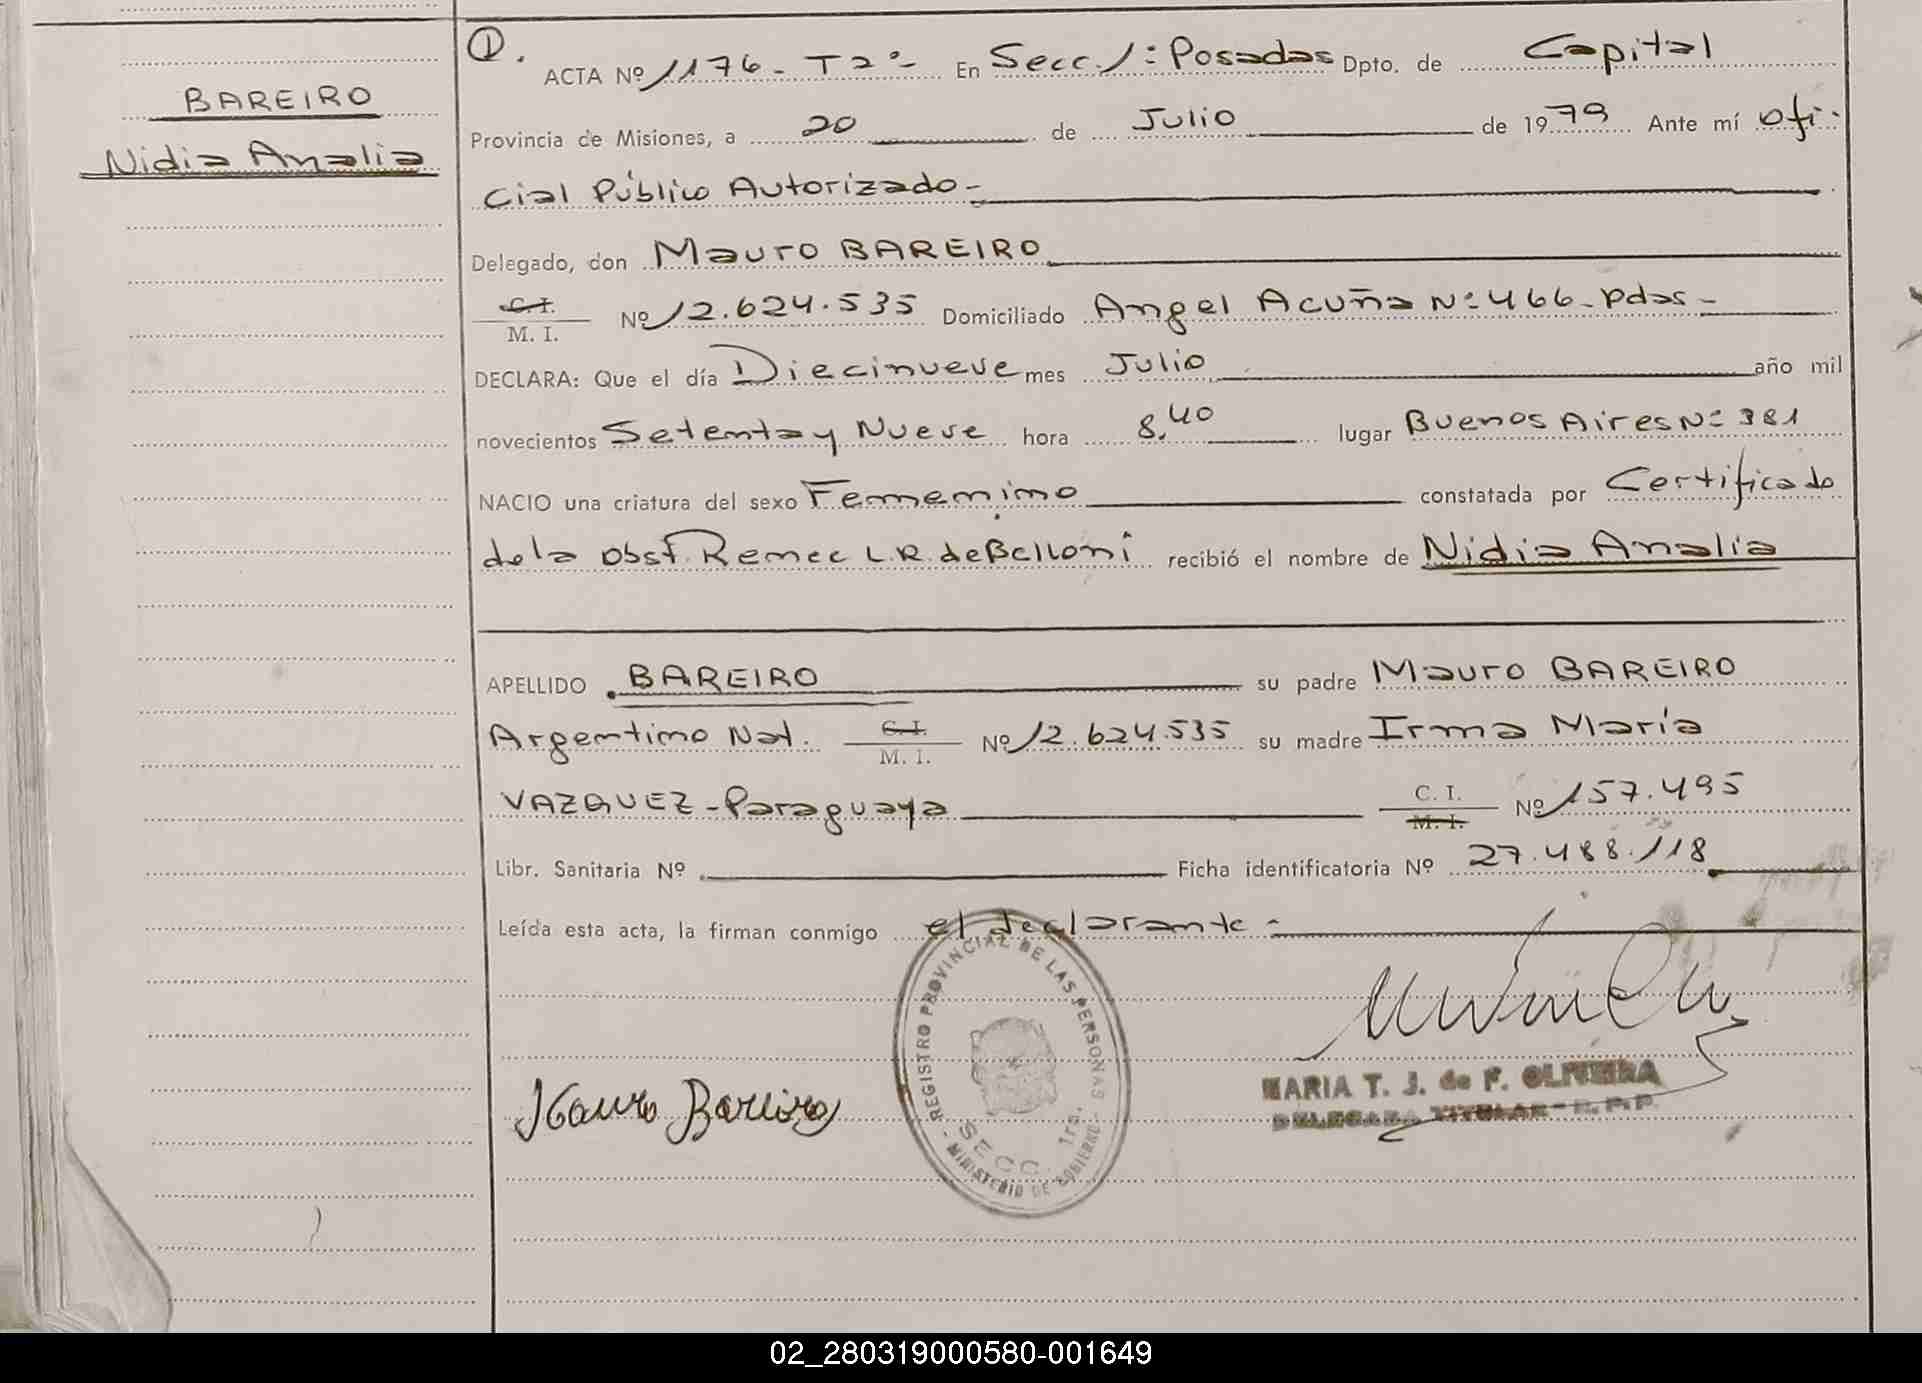 BAREIRO
Nidia Analia
①.
ACTA Nº 1176 - T2º- En Secc. 1: Posadas Dpto. de Capital
Provincia de Misiones, a 20 de Julio de 1979 Ante mí Ofi-
cial Público Autorizado-
Delegado, don Mauro BAREIRO
C.I.
M. I. Nº 12.624.535 Domiciliado Angel Acuña Nº 466-Pdas-
DECLARA: Que el día Diecinueve mes Julio año mil
novecientos Setenta y Nueve hora 8,40 lugar Buenos Aires Nº 381
NACIO una criatura del sexo Femenino constatada por Certificado
de la Obst. Remee L.R. de Belloni recibió el nombre de Nidia Analia
APELLIDO BAREIRO su padre Mauro BAREIRO
Argentino Nat. C.I. M. I. Nº 12.624.535 su madre Irma María
VAZQUEZ-Paraguaya C. I. M. I. Nº 157.495
Libr. Sanitaria Nº Ficha identificatoria Nº 27.488.118
Leída esta acta, la firman conmigo el declarante-
REGISTRO PROVINCIAL DE LAS PERSONAS
SECC. 1ra.
- MINISTERIO DE GOBIERNO -
Mauro Bareiro
MARIA T. J. de F. OLIVEIRA
DELEGADA TITULAR - R. P. P.
02_280319000580-001649